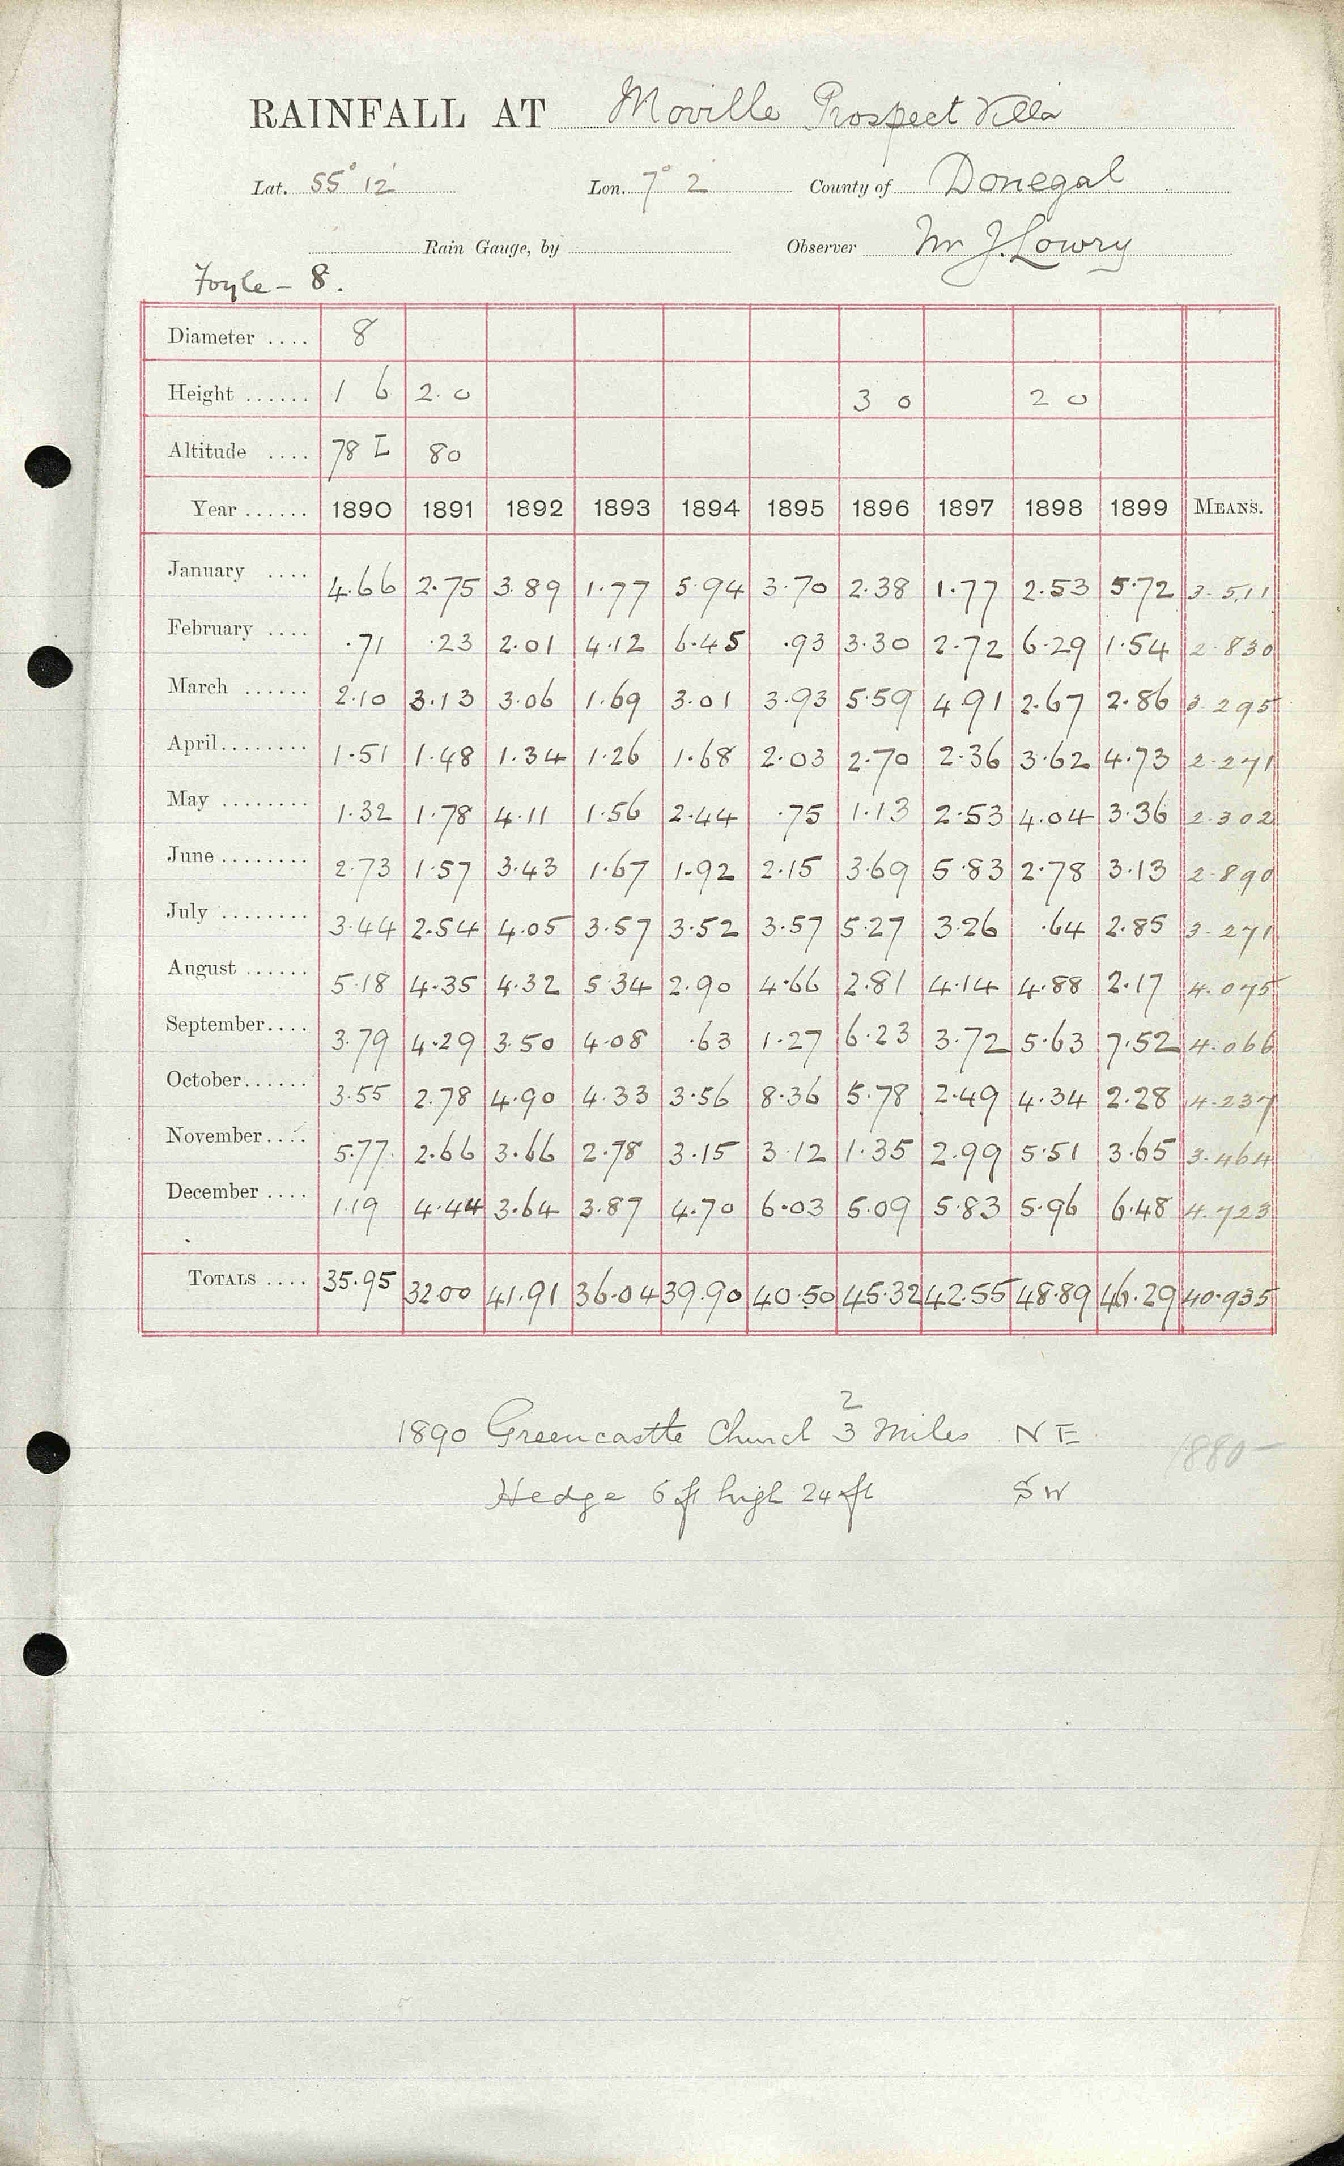 RAINFALL AT Moville Prospect Villa
Lat. 55° 12' Lon. 7° 2' County of Donegal
Rain Gauge, by Observer Mr J. Lowry
Foyle - 8.
Diameter .... 8
Height ...... 1 6 2.0 3 0 2 0
Altitude .... 78 L 80
Year ...... 1890 1891 1892 1893 1894 1895 1896 1897 1898 1899 MEANS.
January .... 4.66 2.75 3.89 1.77 5.94 3.70 2.38 1.77 2.53 5.72 3.511
February .... .71 .23 2.01 4.12 6.45 .93 3.30 2.72 6.29 1.54 2.830
March ...... 2.10 3.13 3.06 1.69 3.01 3.93 5.59 4.91 2.67 2.86 3.295
April........ 1.51 1.48 1.34 1.26 1.68 2.03 2.70 2.36 3.62 4.73 2.271
May ........ 1.32 1.78 4.11 1.56 2.44 .75 1.13 2.53 4.04 3.36 2.302
June ........ 2.73 1.57 3.43 1.67 1.92 2.15 3.69 5.83 2.78 3.13 2.890
July ........ 3.44 2.54 4.05 3.57 3.52 3.57 5.27 3.26 .64 2.85 3.271
August ...... 5.18 4.35 4.32 5.34 2.90 4.66 2.81 4.14 4.88 2.17 4.075
September.... 3.79 4.29 3.50 4.08 .63 1.27 6.23 3.72 5.63 7.52 4.066
October...... 3.55 2.78 4.90 4.33 3.56 8.36 5.78 2.49 4.34 2.28 4.237
November.... 5.77 2.66 3.66 2.78 3.15 3.12 1.35 2.99 5.51 3.65 3.464
December .... 1.19 4.44 3.64 3.87 4.70 6.03 5.09 5.83 5.96 6.48 4.723
TOTALS .... 35.95 32.00 41.91 36.04 39.90 40.50 45.32 42.55 48.89 46.29 40.935
1890 Greencastle Church 2/3 Miles NE
1880-
Hedge 6 ft high 24 ft SW